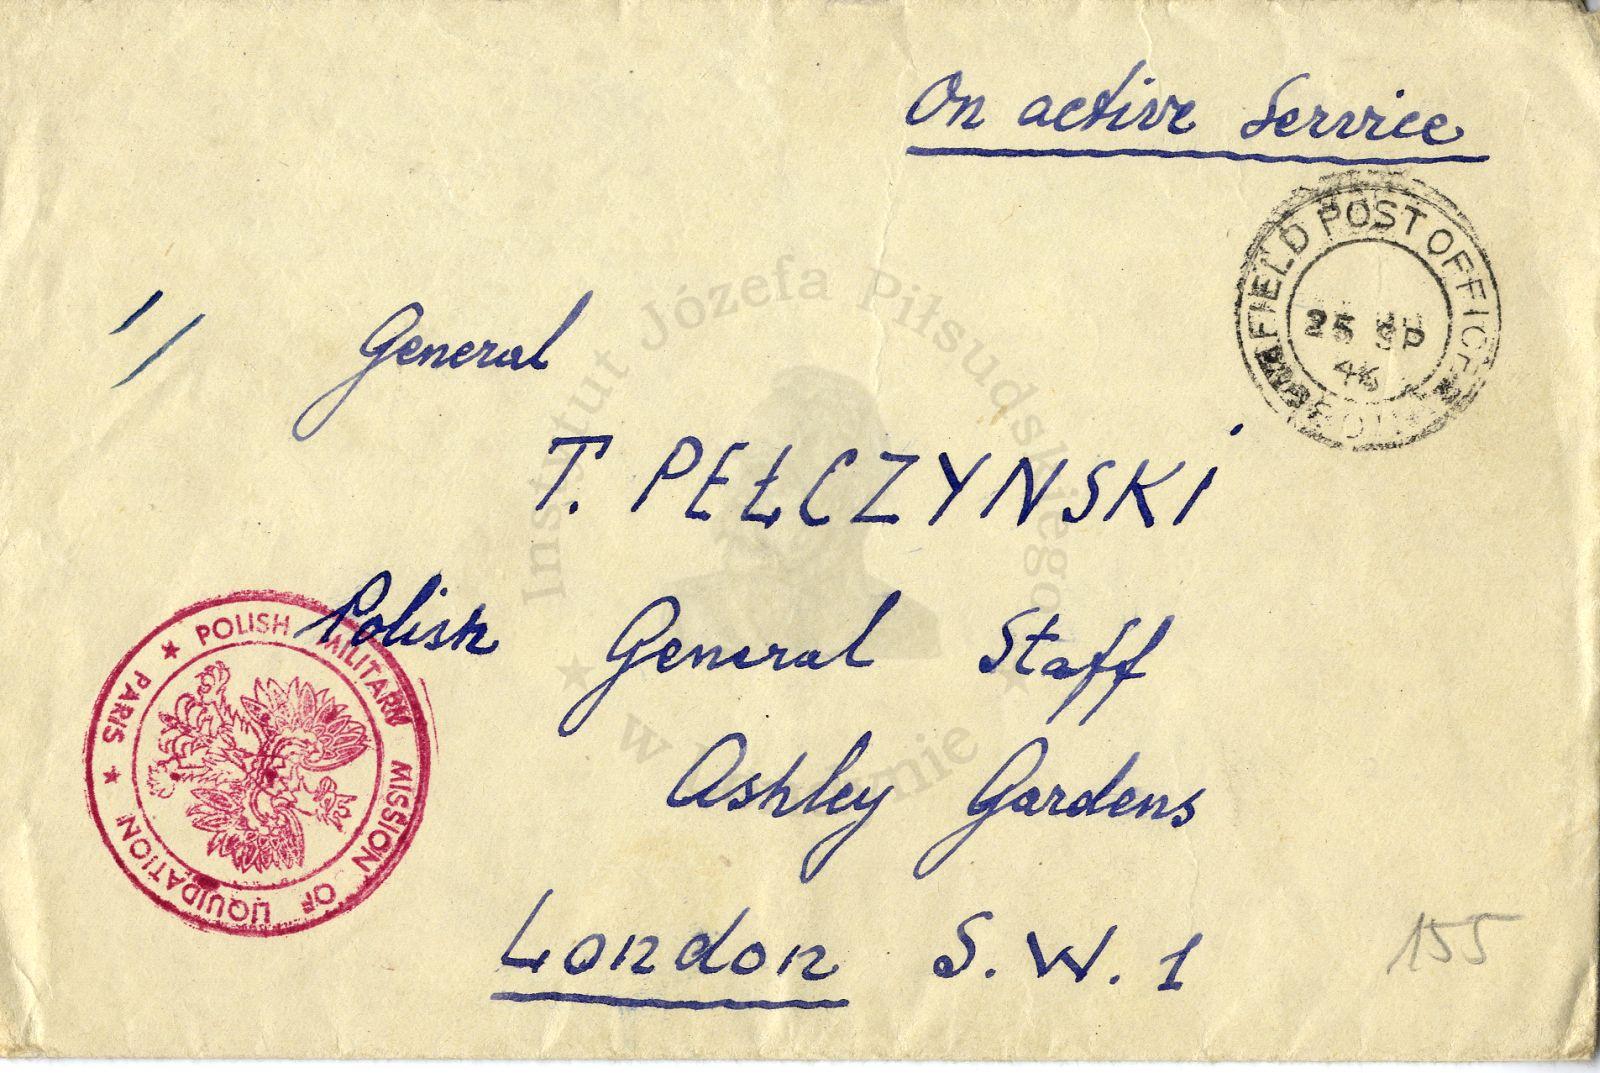 On active Service
FIELD POST OFFICE
25 SP
46
1/
General
T. PEŁCZYNSKI
Polish General Staff
Ashley Gardens
London S.W.1
POLISH MILITARY MISSION OF LIQUIDATION
★ PARIS ★
155
Instytut Józefa Piłsudskiego
w Londynie